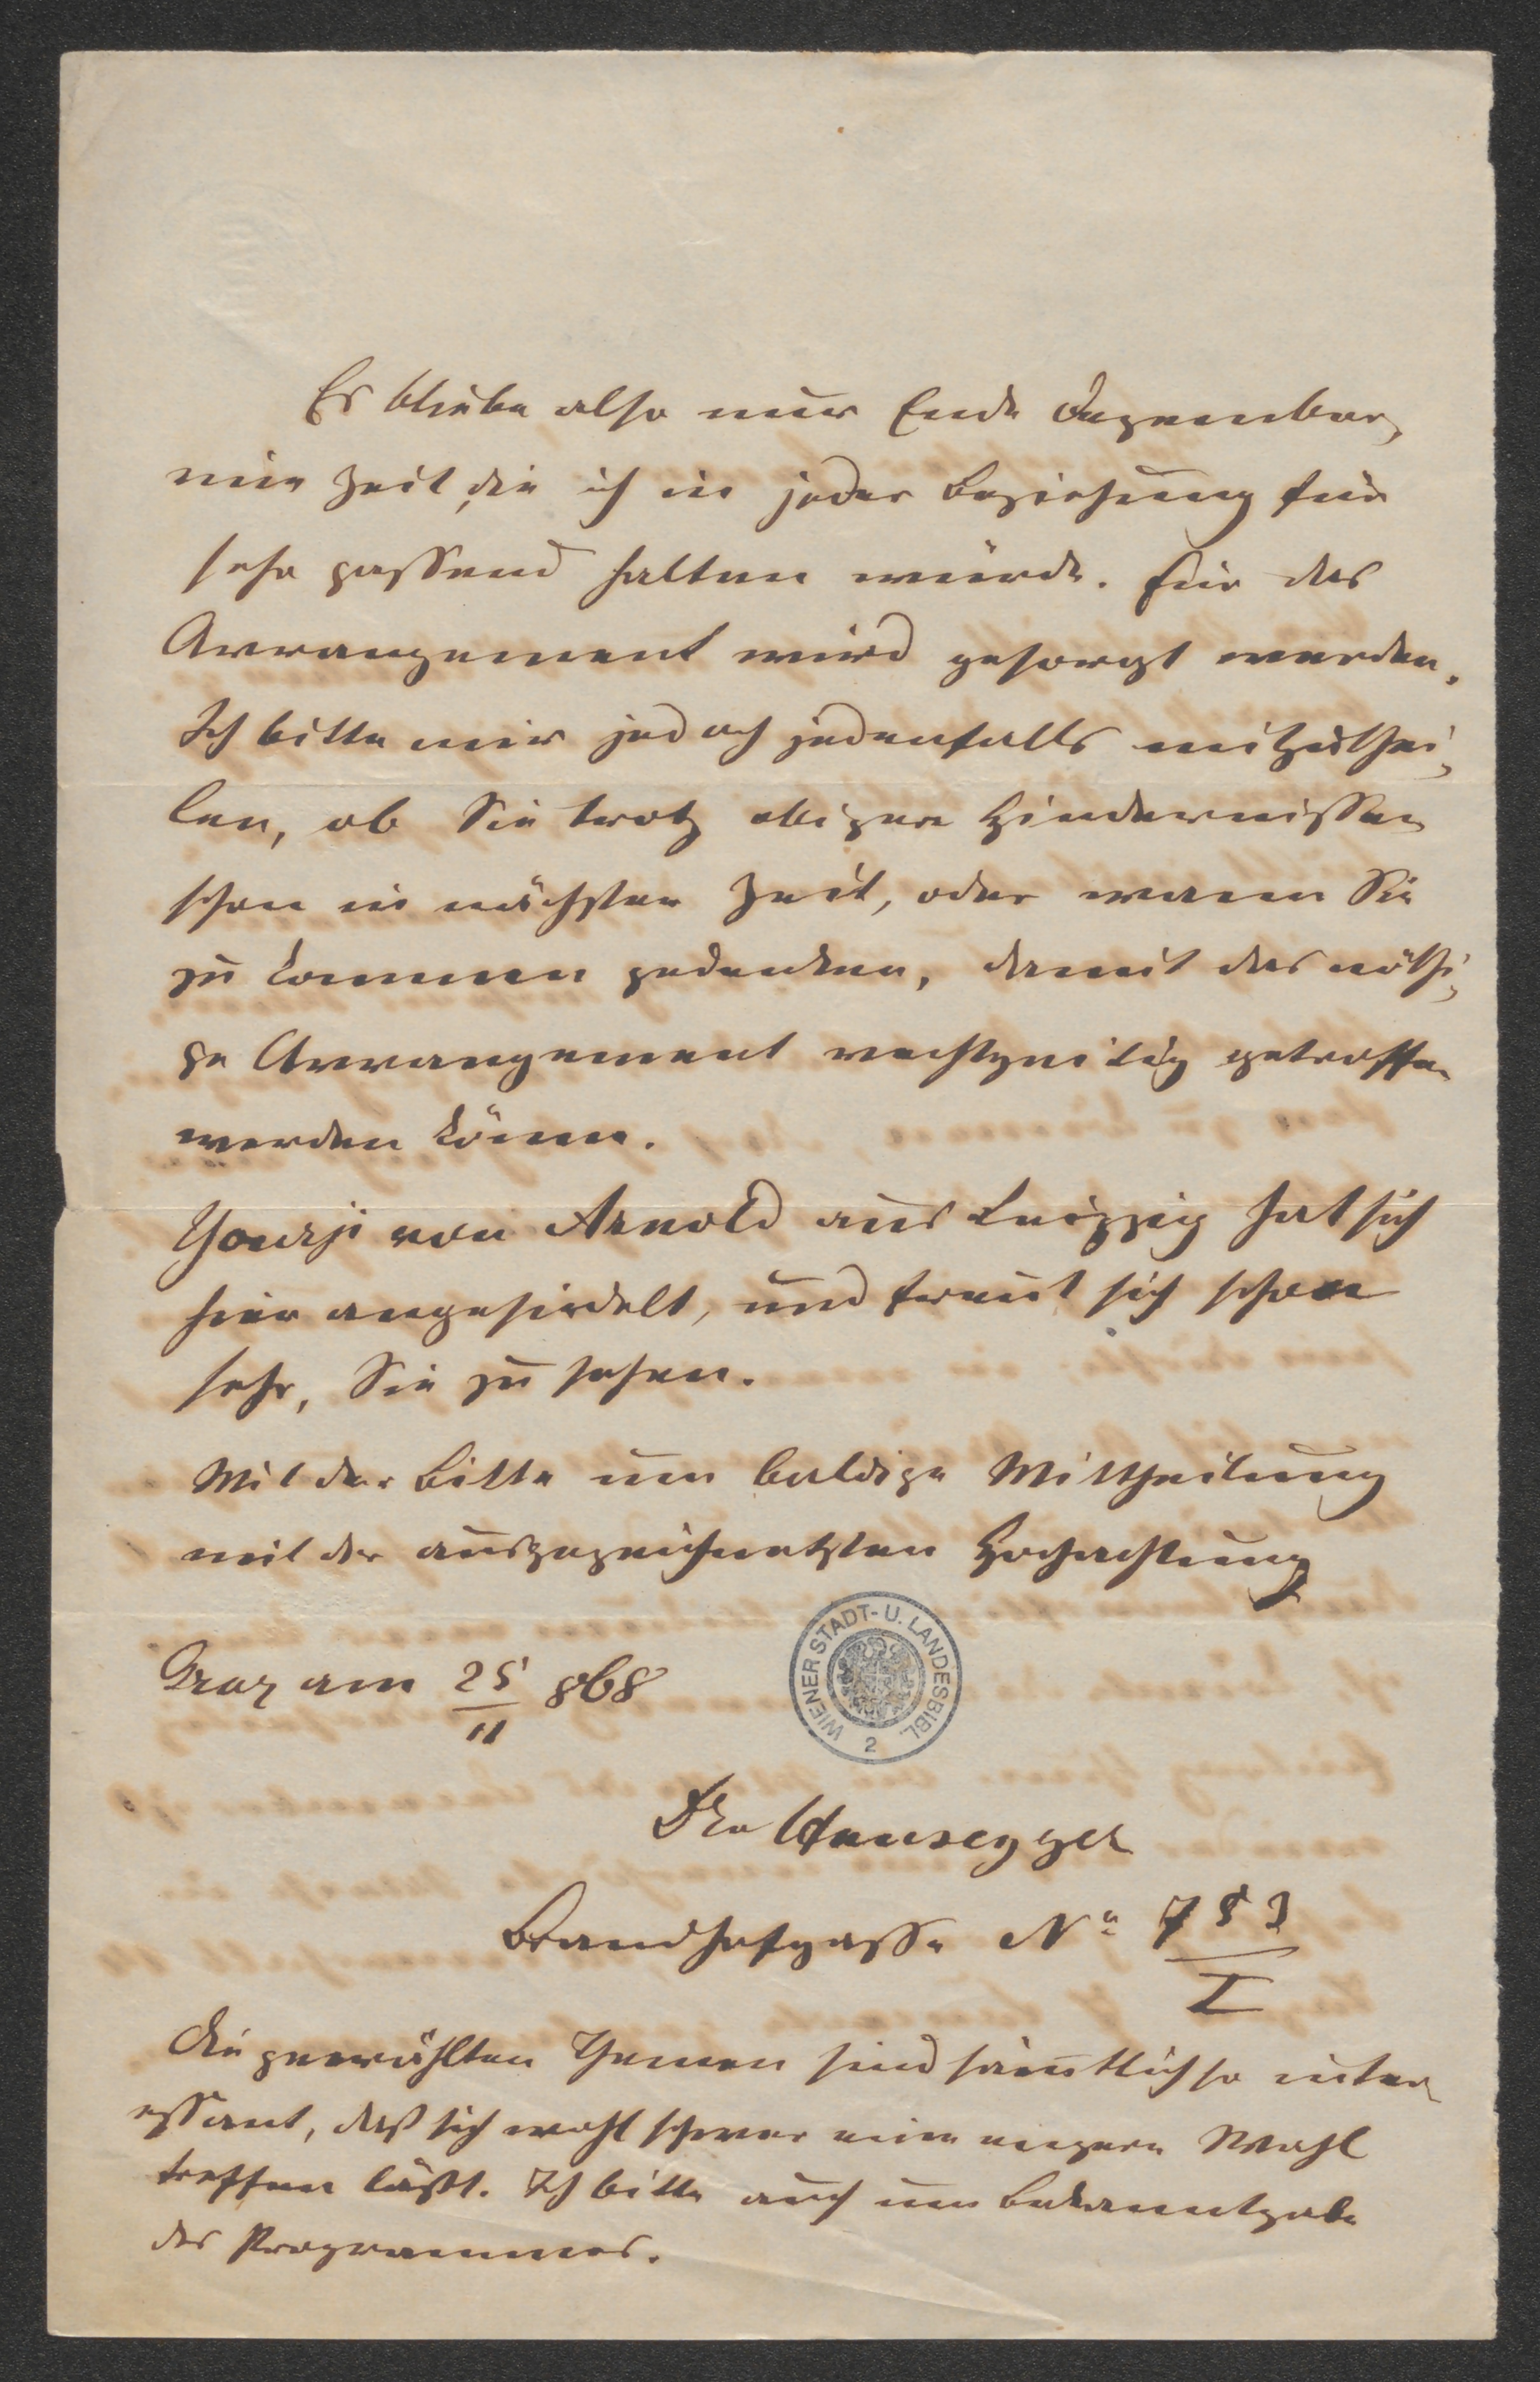 Es bliebe also nur Ende Dezember,
eine Zeit, die ich in jeder Beziehung für
sehr passend halten würde. Für das
Arrangement wird gesorgt werden.
Ich bitte mir jedoch jedenfalls mitzuthei-
len, ob Sie trotz obigen Hindernissen
schon in nächster Zeit, oder wann Sie
zu kommen gedenken, damit das nöthi-
ge Arrangement rechtzeitig getroffen
werden könne.
Yourji von Arnold aus Leipzig hat sich
hier angesiedelt, und freut sich schon
sehr, Sie zu sehen.
Mit der Bitte um baldige Mittheilung
mit der ausgezeichnetsten Hochachtung
Graz am 25/11 868
WIENER STADT- U. LANDESBIBL. 2
Dr Hausegger
Brandhofgasse No 753/I
Die gewählten Themen sind sämtlich so inter-
essant, daß sich wohl schwer eine engere Wahl
treffen läßt. Ich bitte auch um Bekanntgabe
des Programmes.